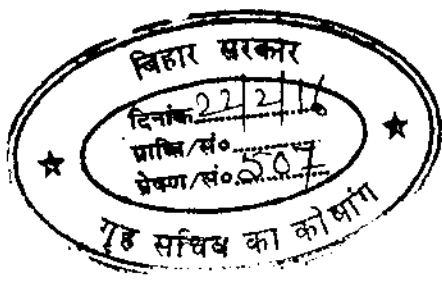 बिहार सरकार
दिनांक 22/2/16
प्राप्ति/सं०
प्रेषण/सं० 507
गृह सचिव का कोषांग